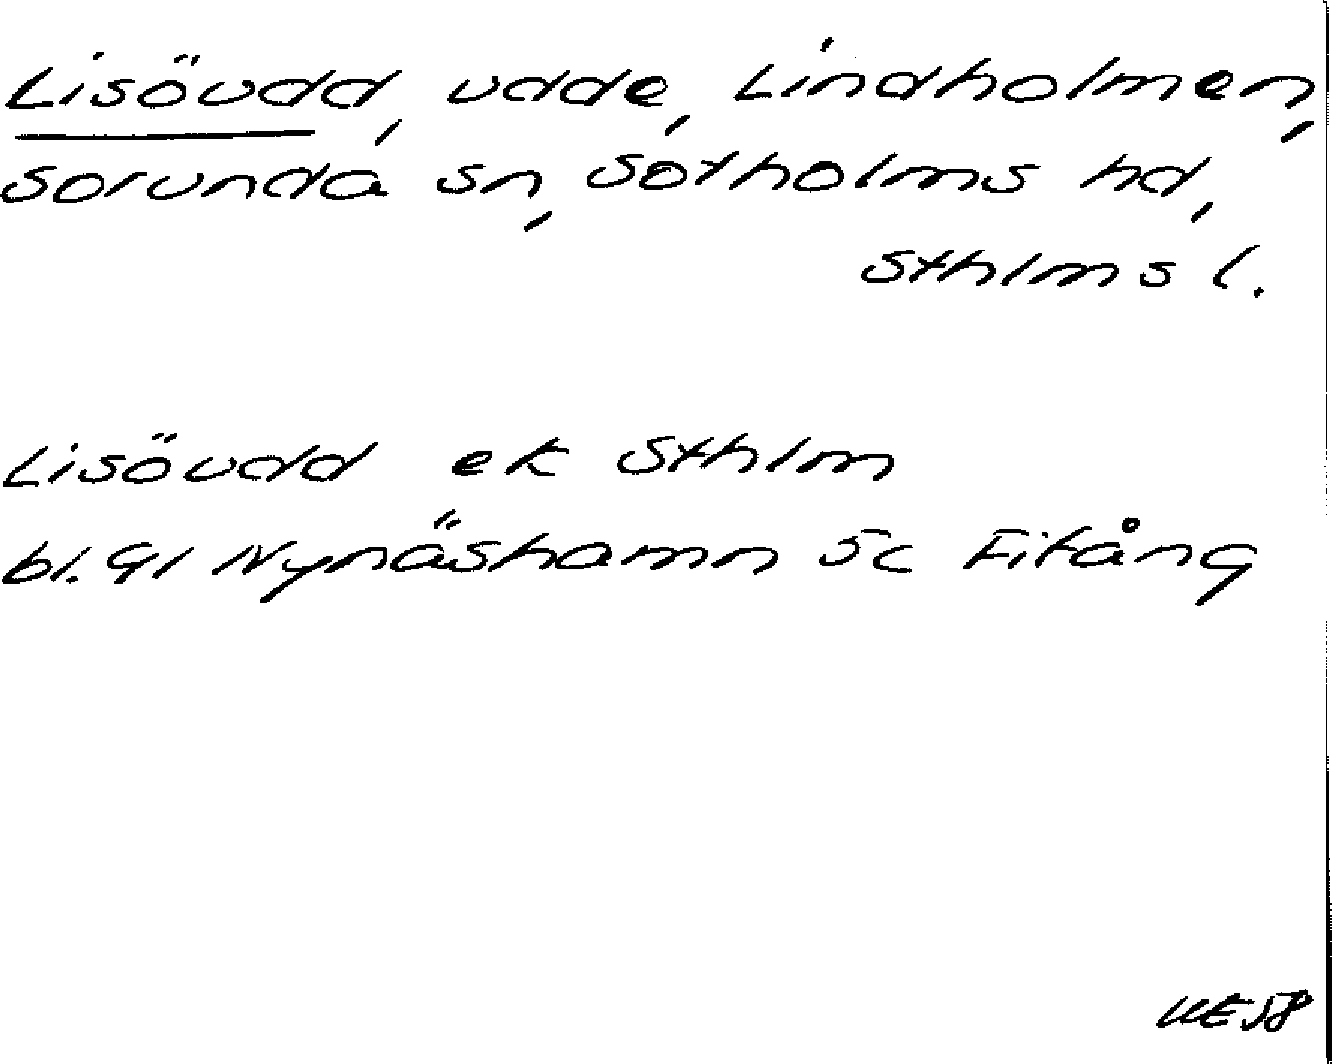 Lisöudd, udde, Lindholmen,
Sorunda sn, Sotholms hd,
Sthlms l.
Lisöudd ek Sthlm
bl. 91 Nynäshamn 5c Fifång
UE 58